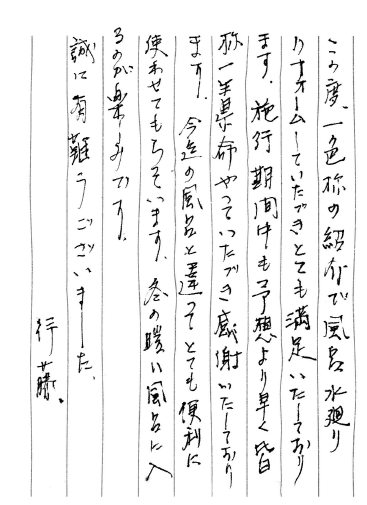 この度、一色様の紹介で風呂水廻り
リフォームしていただきとても満足いたしており
ます。施行期間中も予想より早く皆
様一生懸命やっていただき感謝いたしており
ます。今迄の風呂と違ってとても便利に
使わせてもらっています。冬の暖い風呂に入
るのが楽しみです。
誠に有難うございました。